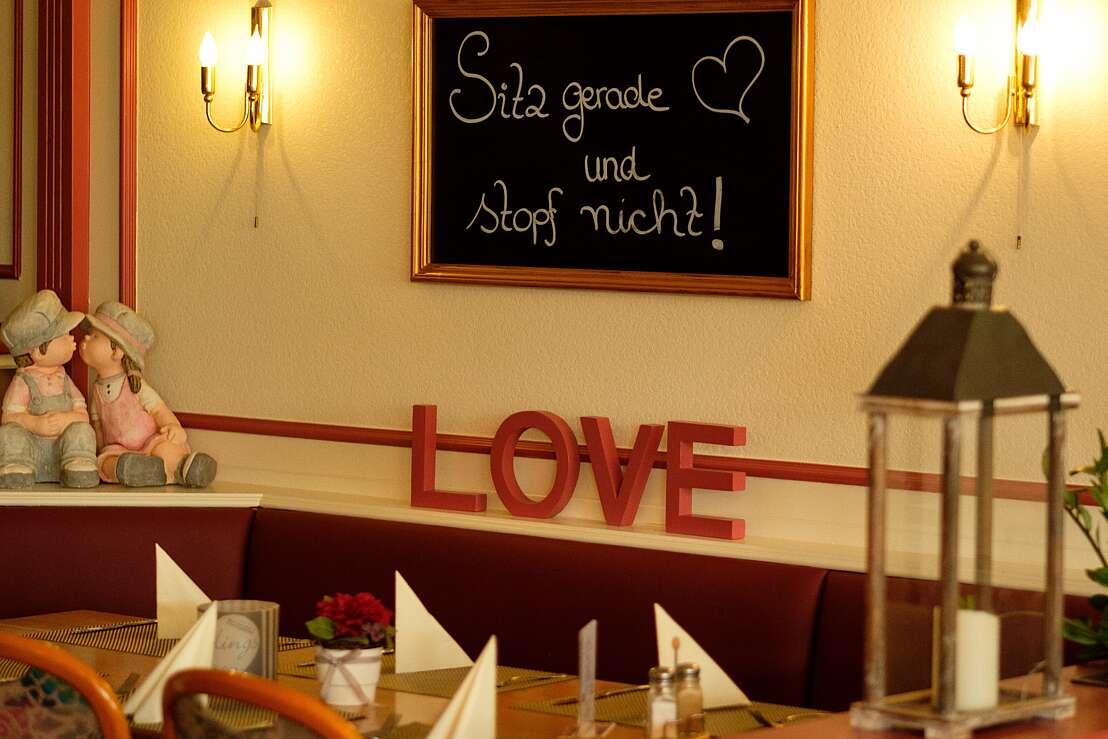 Sitz gerade
und
stopf nicht!
LOVE